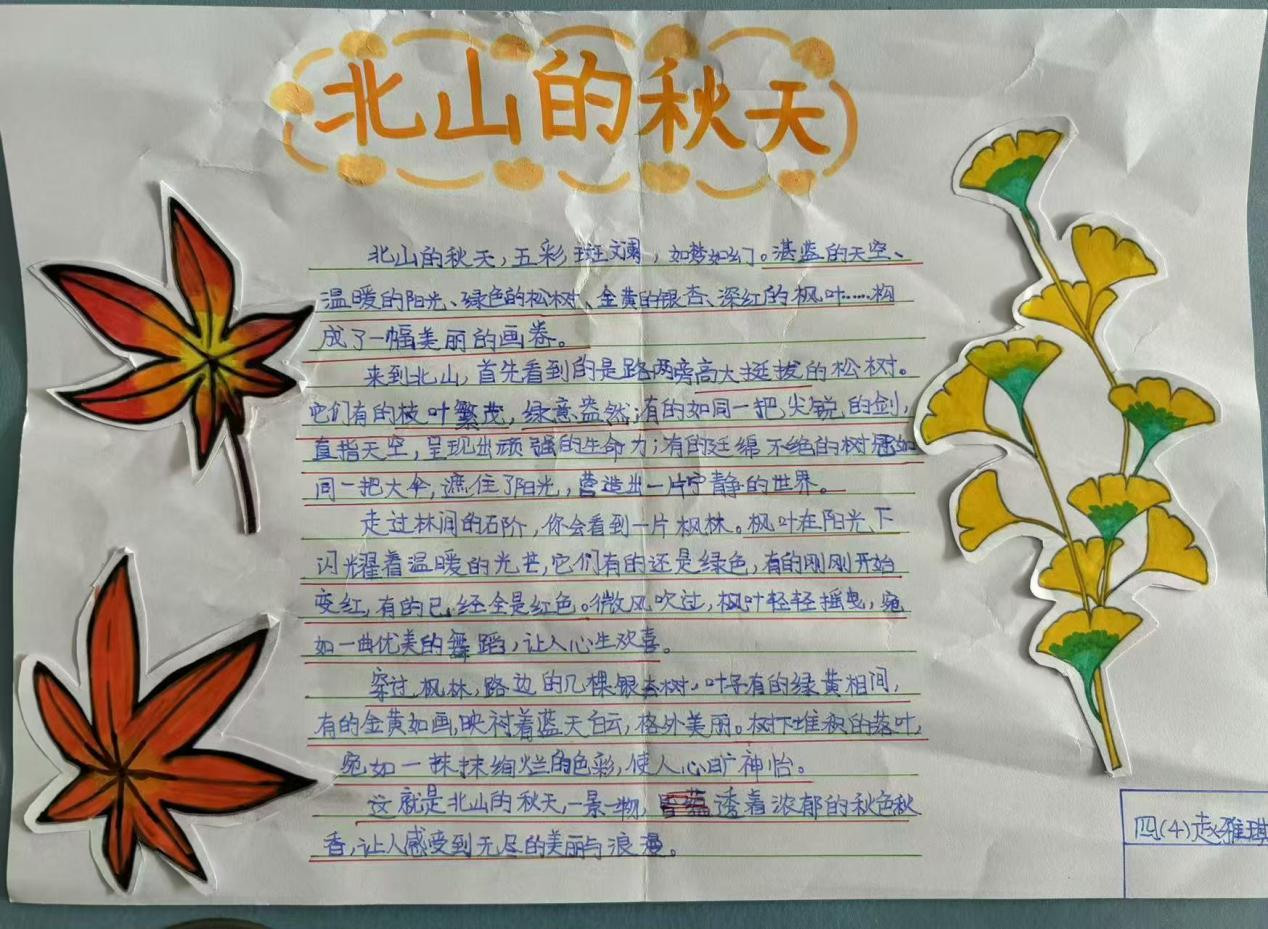 北山的秋天
北山的秋天，五彩斑斓，如梦如幻。湛蓝的天空、
温暖的阳光、绿色的松树、金黄的银杏、深红的枫叶……构
成了一幅美丽的画卷。
来到北山，首先看到的是路两旁高大挺拔的松树。
它们有的枝叶繁茂，绿意盎然；有的如同一把尖锐的剑，
直指天空，呈现出顽强的生命力；有的延绵不绝的树冠如
同一把大伞，遮住了阳光，营造出一片宁静的世界。
走过林间的石阶，你会看到一片枫林。枫叶在阳光下
闪耀着温暖的光芒，它们有的还是绿色，有的刚刚开始
变红，有的已经全是红色。微风吹过，枫叶轻轻摇曳，宛
如一曲优美的舞蹈，让人心生欢喜。
穿过枫林，路边的几棵银杏树，叶子有的绿黄相间，
有的金黄如画，映衬着蓝天白云，格外美丽。树下堆积的落叶，
宛如一抹抹绚烂的色彩，使人心旷神怡。
这就是北山的秋天，一景一物，透着浓郁的秋色秋
香，让人感受到无尽的美丽与浪漫。
四(4)赵雅琪